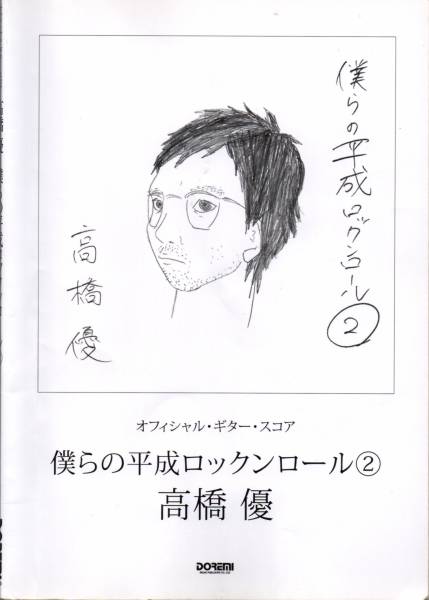 僕らの平成ロックンロール②
高橋優
オフィシャル・ギター・スコア
僕らの平成ロックンロール②
高橋 優
DOREMI